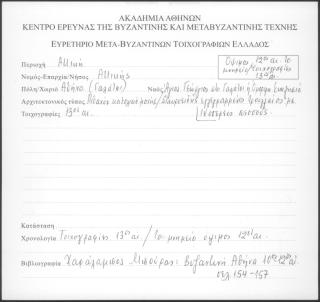 ΑΚΑΔΗΜΙΑ ΑΘΗΝΩΝ
ΚΕΝΤΡΟ ΕΡΕΥΝΑΣ ΤΗΣ ΒΥΖΑΝΤΙΝΗΣ ΚΑΙ ΜΕΤΑΒΥΖΑΝΤΙΝΗΣ ΤΕΧΝΗΣ
ΕΥΡΕΤΗΡΙΟ ΜΕΤΑ-ΒΥΖΑΝΤΙΝΩΝ ΤΟΙΧΟΓΡΑΦΙΩΝ ΕΛΛΑΔΟΣ
Περιοχή Αττική
Όψιμος 12ος αι. το μνημείο/τοιχογραφίες 13ος αι.
Νομός-Επαρχία/Νήσος Αττικής
Πόλη/Χωριό Αθήνα (Γαλάτσι) Ναός Άγιος Γεώργιος στο Γαλάτσι ή Όμορφη Εκκλησιά
Αρχιτεκτονικός τύπος εγγεγραμμένος με
Τοιχογραφίες 13ος αι. τέσσερις κίονες
Κατάσταση
Χρονολογία Τοιχογραφίες 13ος αι./το μνημείο όψιμος 12ος αι.
Βιβλιογραφία Χαράλαμπος Μπούρας: Βυζαντινή Αθήνα 10ος-12ος αι.
σελ. 154-157